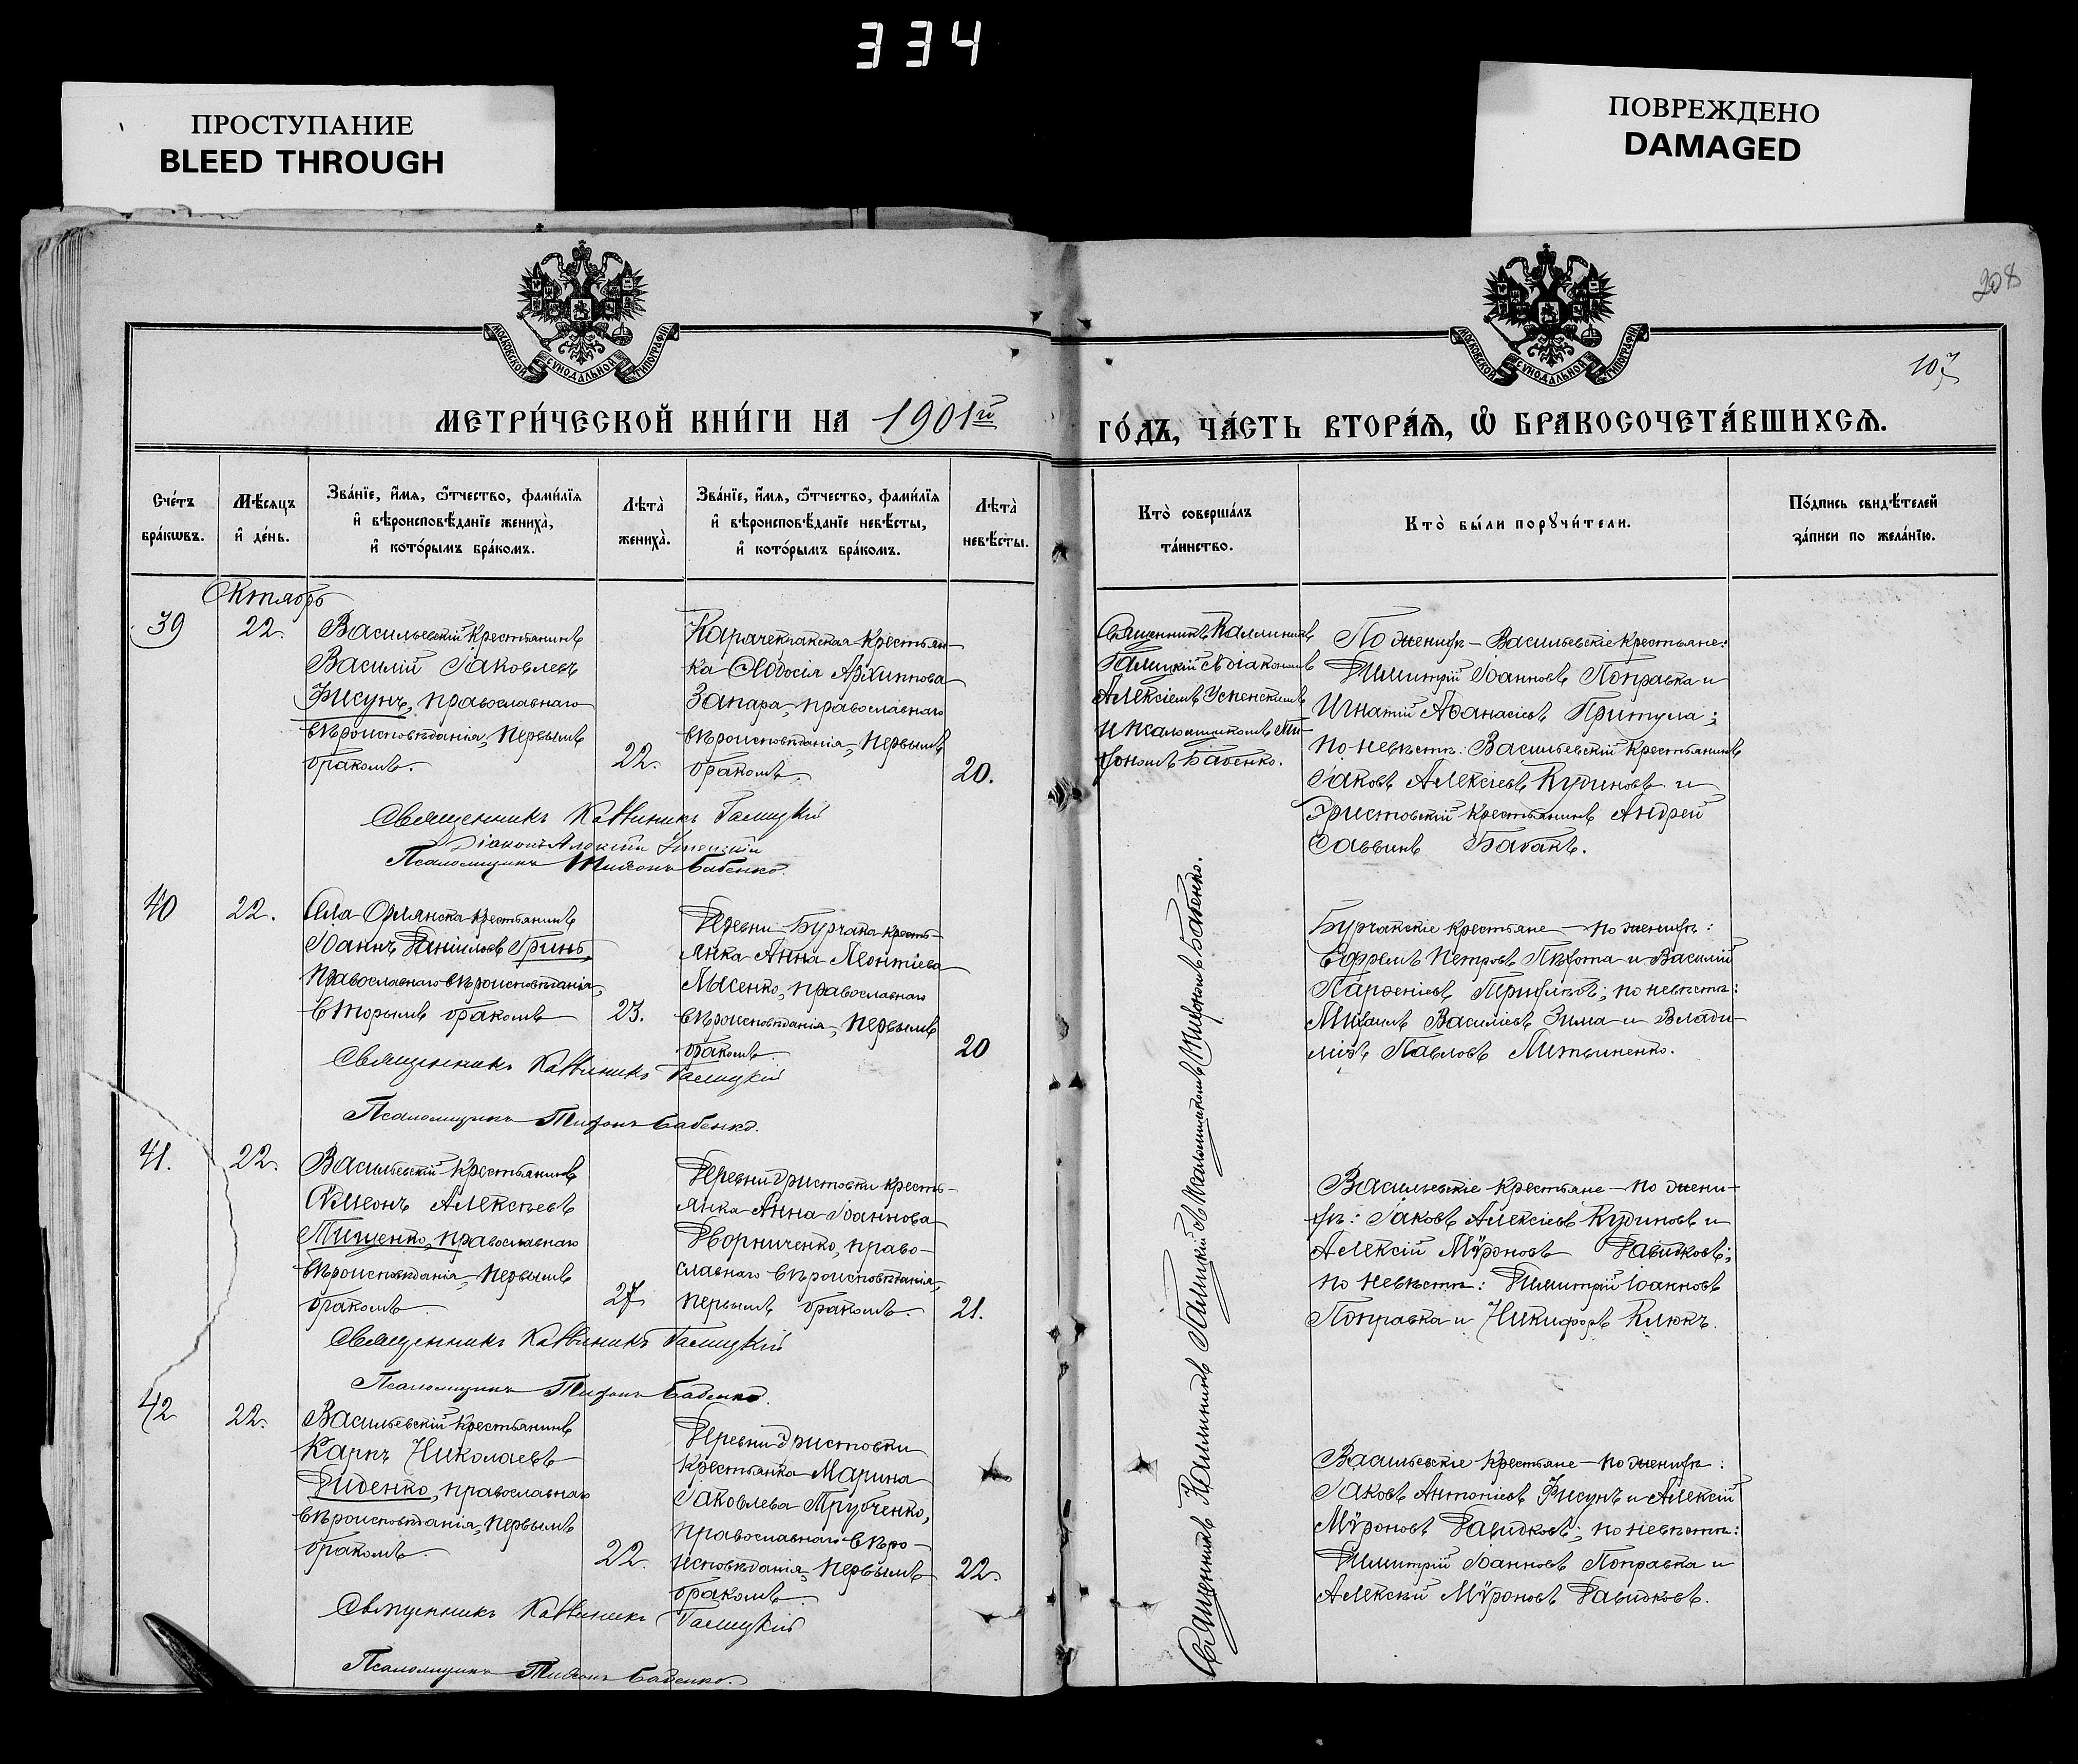 334
ПРОСТУПАНИЕ
BLEED THROUGH
ПОВРЕЖДЕНО
DAMAGED
208
107
МОСКОВСКОЙ СѴНОДАЛЬНОЙ ТИПОГРАФІИ
МОСКОВСКОЙ СѴНОДАЛЬНОЙ ТИПОГРАФІИ
МЕТРИ́ЧЕСКОЙ КНИ́ГИ НА 1901й
ГО́ДЪ, ЧА́СТЬ ВТОРА́Ѧ, Ѡ҆ БРАКОСОЧЕТА́ВШИХСѦ.
Сче́тъ
бра́кѡвъ.
Мѣ́сяцъ
и҆ де́нь.
Зва́нїе, и҆́мя, ѻ҆́тчество, фами́лїя
и҆ вѣроисповѣ́данїе жениха̀,
и҆ кото́рымъ бра́комъ.
Лѣта̀
жениха̀.
Зва́нїе, и҆́мя, ѻ҆́тчество, фами́лїя
и҆ вѣроисповѣ́данїе невѣ́сты,
и҆ кото́рымъ бра́комъ.
Лѣта̀
невѣ́сты.
Кто̀ соверша́лъ
та́инство.
Кто̀ бы́ли порꙋчи́тели.
По́дпись свидѣ́телей
за́писи по жела́нїю.
Октябрь
39
22.
Васильевскій крестьянинъ
Василій Іаковлевъ
Фисунъ, православнаго
вѣроисповѣданія, первымъ
бракомъ.
22.
Карачекракская крестьян-
ка Ѳеодосія Архиппова
Запара, православнаго
вѣроисповѣданія, первымъ
бракомъ.
20.
Священникъ Каллиникъ
Галицкій съ діакономъ
Алексіемъ Успенскимъ
и псаломщикомъ Ти-
хономъ Бабенко.
По женихѣ – Васильевскіе крестьяне:
Димитрій Іоанновъ Поправка и
Игнатій Аѳанасіевъ Притула;
по невѣстѣ: Васильевскій крестьянинъ
Іаковъ Алексіевъ Кудиновъ и
Эристовскій крестьянинъ Андрей
Саввинъ Бабакъ.
Священникъ Каллиникъ Галицкій
Діаконъ Алексій Успенскій
Псаломщикъ Тихонъ Бабенко.
40
22.
Села Орлянска крестьянинъ
Іоаннъ Даніиловъ Гринь,
православнаго вѣроисповѣданія,
вторымъ бракомъ
23.
Деревни Бурчака кресть-
янка Анна Леонтіева
Лысенко, православнаго
вѣроисповѣданія, первымъ
бракомъ.
20
Бурчакскіе крестьяне – по женихѣ:
Ефремъ Петровъ Пѣхота и Василій
Парѳеніевъ Трифловъ; по невѣстѣ:
Михаилъ Василіевъ Зима и Влади-
міръ Павловъ Литвиненко.
Священникъ Каллиникъ Галицкій
Псаломщикъ Тихонъ Бабенко.
41.
22.
Васильевскій крестьянинъ
Симеонъ Алексѣевъ
Тищенко, православнаго
вѣроисповѣданія, первымъ
бракомъ.
27
Деревни Эристовки кресть-
янка Анна Іоаннова
Дворниченко, право-
славнаго вѣроисповѣданія,
первымъ бракомъ.
21.
Васильевскіе крестьяне – по жени-
хѣ: Іаковъ Алексіевъ Кудиновъ и
Алексій Мѵроновъ Давидковъ;
по невѣстѣ: Димитрій Іоанновъ
Поправка и Никифоръ Клюкъ.
Священникъ Каллиникъ Галицкій
Псаломщикъ Тихонъ Бабенко.
42
22.
Васильевскій крестьянинъ
Карпъ Николаевъ
Диденко, православнаго
вѣроисповѣданія, первымъ
бракомъ.
22.
Деревни Эристовки
крестьянка Марина
Іаковлева Трубченко,
православнаго вѣро-
исповѣданія, первымъ
бракомъ.
22.
Васильевскіе крестьяне – по женихѣ:
Іаковъ Антоніевъ Фисунъ и Алексій
Мѵроновъ Давидковъ; по невѣстѣ:
Димитрій Іоанновъ Поправка и
Алексій Мѵроновъ Давидковъ.
Священникъ Каллиникъ Галицкій
Псаломщикъ Тихонъ Бабенко.
Священникъ Каллиникъ Галицкій съ псаломщикомъ Тихономъ Бабенко.